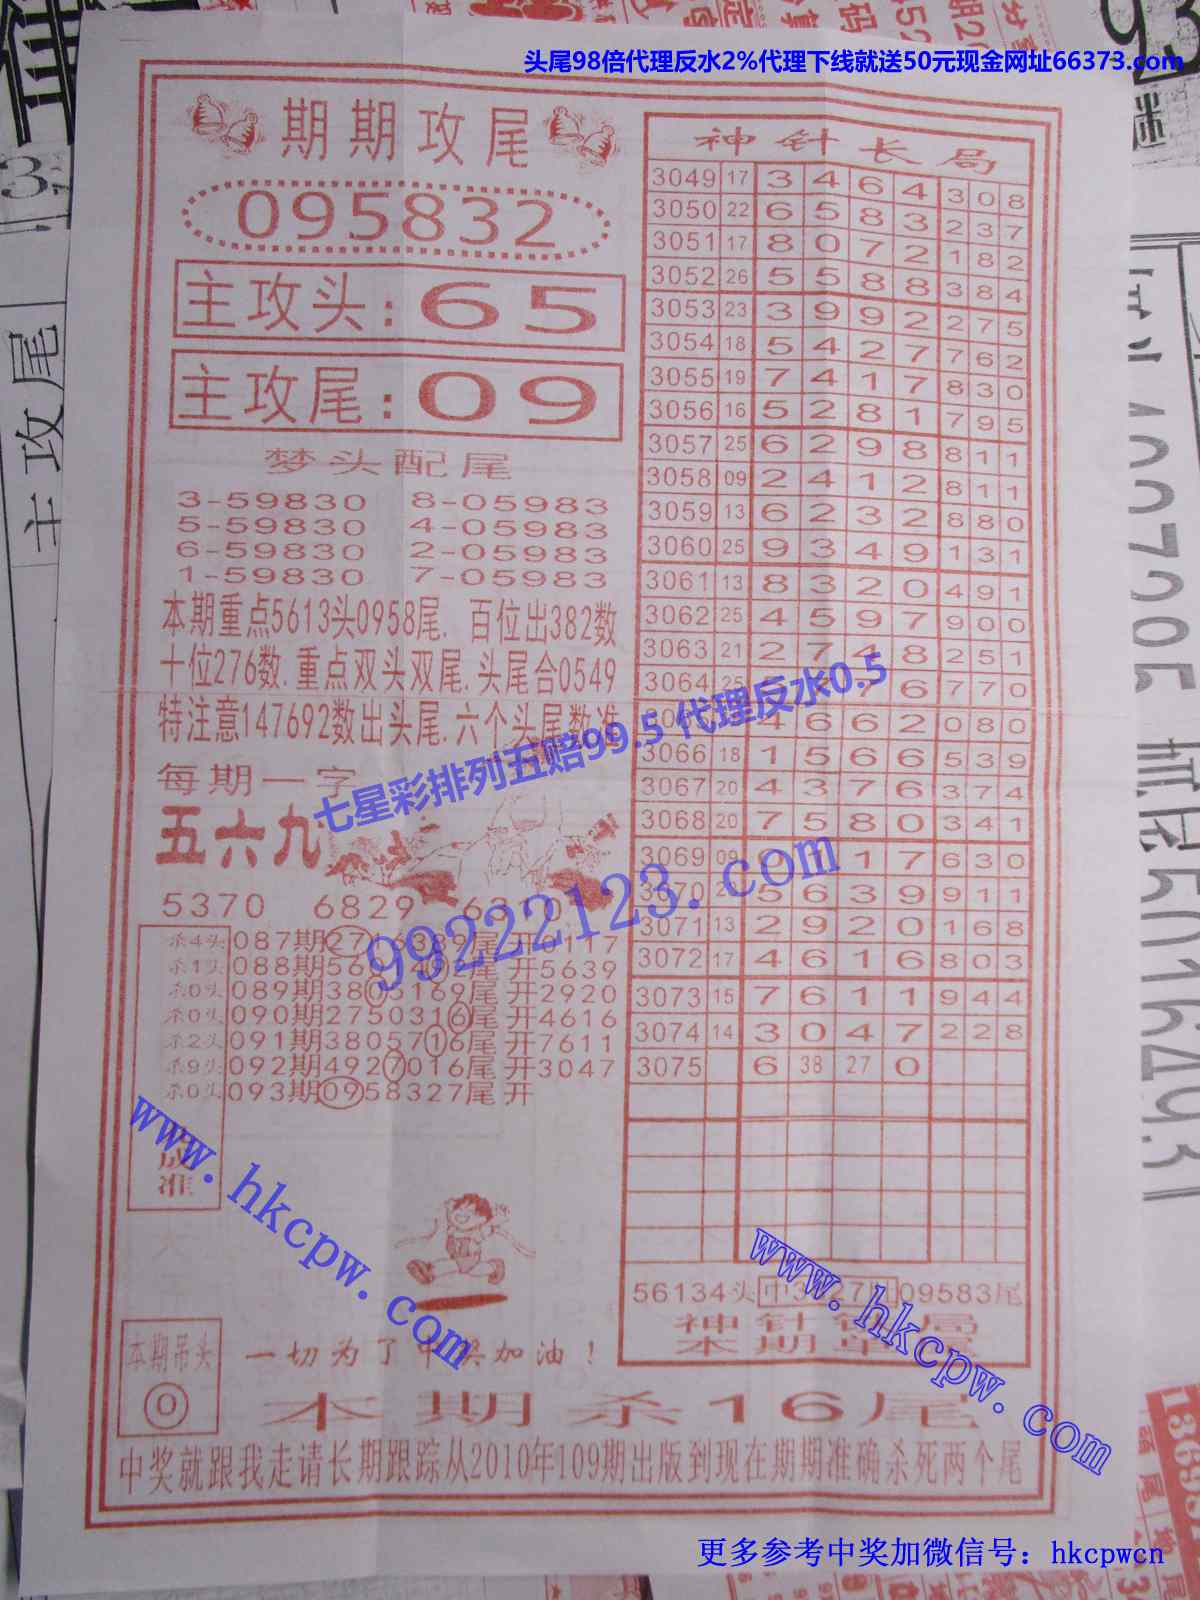 头尾98倍代理反水2%代理下线就送50元现金网址66373.com
期期攻尾
095832
主攻头:65
主攻尾:09
梦头配尾
3-59830 8-05983
5-59830 4-05983
6-59830 2-05983
1-59830 7-05983
本期重点5613头0958尾. 百位出382数
十位276数.重点双头双尾.头尾合0549
特注意147692数出头尾.六个头尾数准
每期一字
五六九
5370 6829
杀4头 087期 尾 开0117
杀1头 088期 尾 开5639
杀0头 089期3803169尾 开2920
杀0头 090期2750316尾 开4616
杀2头 091期3805716尾 开7611
杀9头 092期4927016尾 开3047
杀0头 093期0958327尾 开
准
本期吊头
0
一切为了中奖加油!
神针长局
3049 17 3 4 6 4 3 0 8
3050 22 6 5 8 3 2 3 7
3051 17 8 0 7 2 1 8 2
3052 26 5 5 8 8 3 8 4
3053 23 3 9 9 2 2 7 5
3054 18 5 4 2 7 7 6 2
3055 19 7 4 1 7 8 3 0
3056 16 5 2 8 1 7 9 5
3057 25 6 2 9 8 8 1 1
3058 09 2 4 1 2 8 1 1
3059 13 6 2 3 2 8 8 0
3060 25 9 3 4 9 1 3 1
3061 13 8 3 2 0 4 9 1
3062 25 4 5 9 7 9 0 0
3063 21 2 7 4 8 2 5 1
3064 25 6 7 7 0
4 6 6 2 0 8 0
3066 18 1 5 6 6 5 3 9
3067 20 4 3 7 6 3 7 4
3068 20 7 5 8 0 3 4 1
3069 09 0 1 1 7 6 3 0
3070 5 6 3 9 9 1 1
3071 13 2 9 2 0 1 6 8
3072 17 4 6 1 6 8 0 3
3073 15 7 6 1 1 9 4 4
3074 14 3 0 4 7 2 2 8
3075 6 38 27 0
56134头 中 09583尾
神针
本期
本期杀16尾
中奖就跟我走请长期跟踪从2010年109期出版到现在期期准确杀死两个尾
七星彩排列五赔99.5 代理反水0.5
99222123.com
www.hkcpw.com
www.hkcpw.com
更多参考中奖加微信号：hkcpwcn
主攻尾